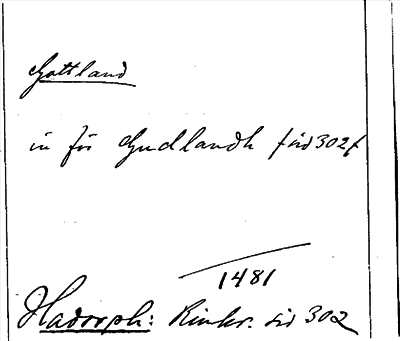 Gottland
in för Gudlandh sid 302
1481
Hadorph: Rimkr. sid 302